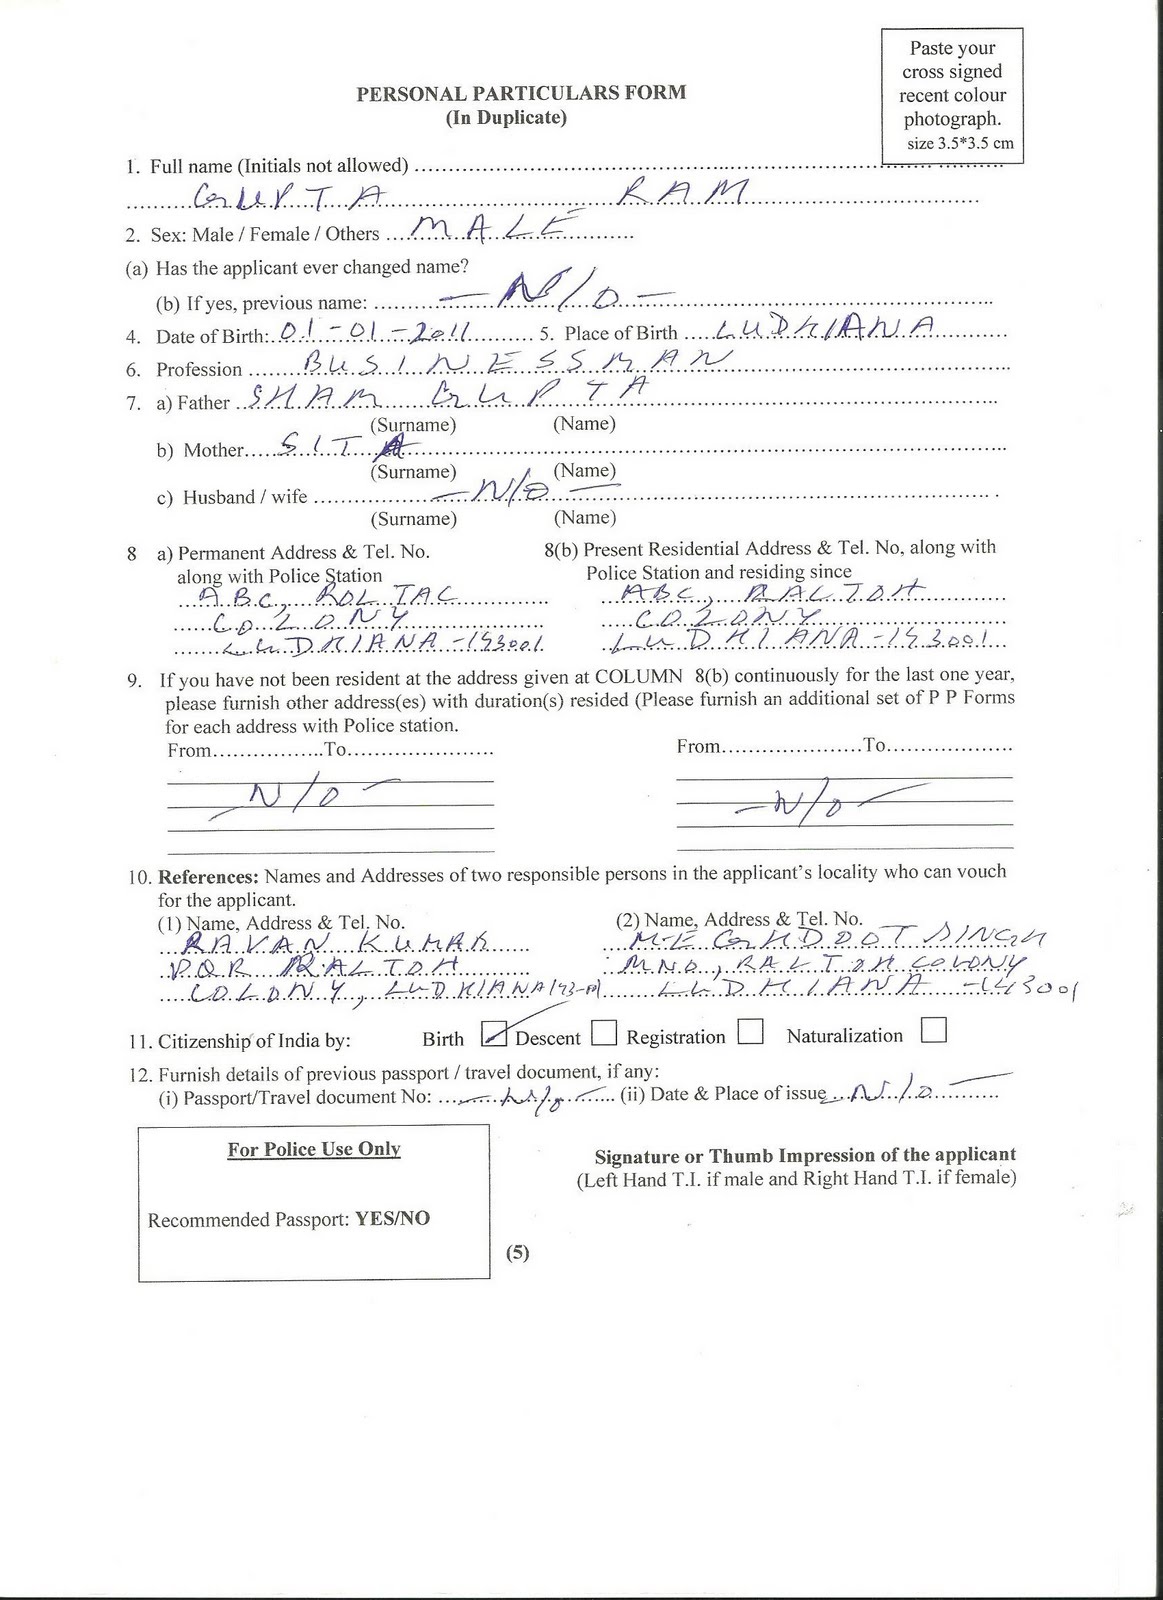 Paste your
cross signed
recent colour
photograph.
size 3.5*3.5 cm
PERSONAL PARTICULARS FORM
(In Duplicate)
1. Full name (Initials not allowed) ........................................
GUPTA RAM
2. Sex: Male / Female / Others MALE
(a) Has the applicant ever changed name?
(b) If yes, previous name: — N/O —
4. Date of Birth: 01-01-2011 5. Place of Birth LUDHIANA
6. Profession BUSINESSMAN
7. a) Father SHAM GUPTA
(Surname) (Name)
b) Mother SITA
(Surname) (Name)
c) Husband / wife — N/O —
(Surname) (Name)
8 a) Permanent Address & Tel. No.
along with Police Station
ABC,
COLONY
LUDHIANA-143001
8(b) Present Residential Address & Tel. No, along with
Police Station and residing since
ABC, RALTOH
COLONY
LUDHIANA-143001
9. If you have not been resident at the address given at COLUMN 8(b) continuously for the last one year,
please furnish other address(es) with duration(s) resided (Please furnish an additional set of P P Forms
for each address with Police station.
From.................To...................... From.....................To...................
— N/O — — N/O —
10. References: Names and Addresses of two responsible persons in the applicant's locality who can vouch
for the applicant.
(1) Name, Address & Tel. No.
RAVAN KUMAR
PQR RALTOH
COLONY, LUDHIANA
(2) Name, Address & Tel. No.
SINGH
MNO, RALTOH COLONY
LUDHIANA -143001
11. Citizenship of India by: Birth Descent Registration Naturalization
12. Furnish details of previous passport / travel document, if any:
(i) Passport/Travel document No: — N/O — (ii) Date & Place of issue — N/O —
For Police Use Only
Recommended Passport: YES/NO
Signature or Thumb Impression of the applicant
(Left Hand T.I. if male and Right Hand T.I. if female)
(5)